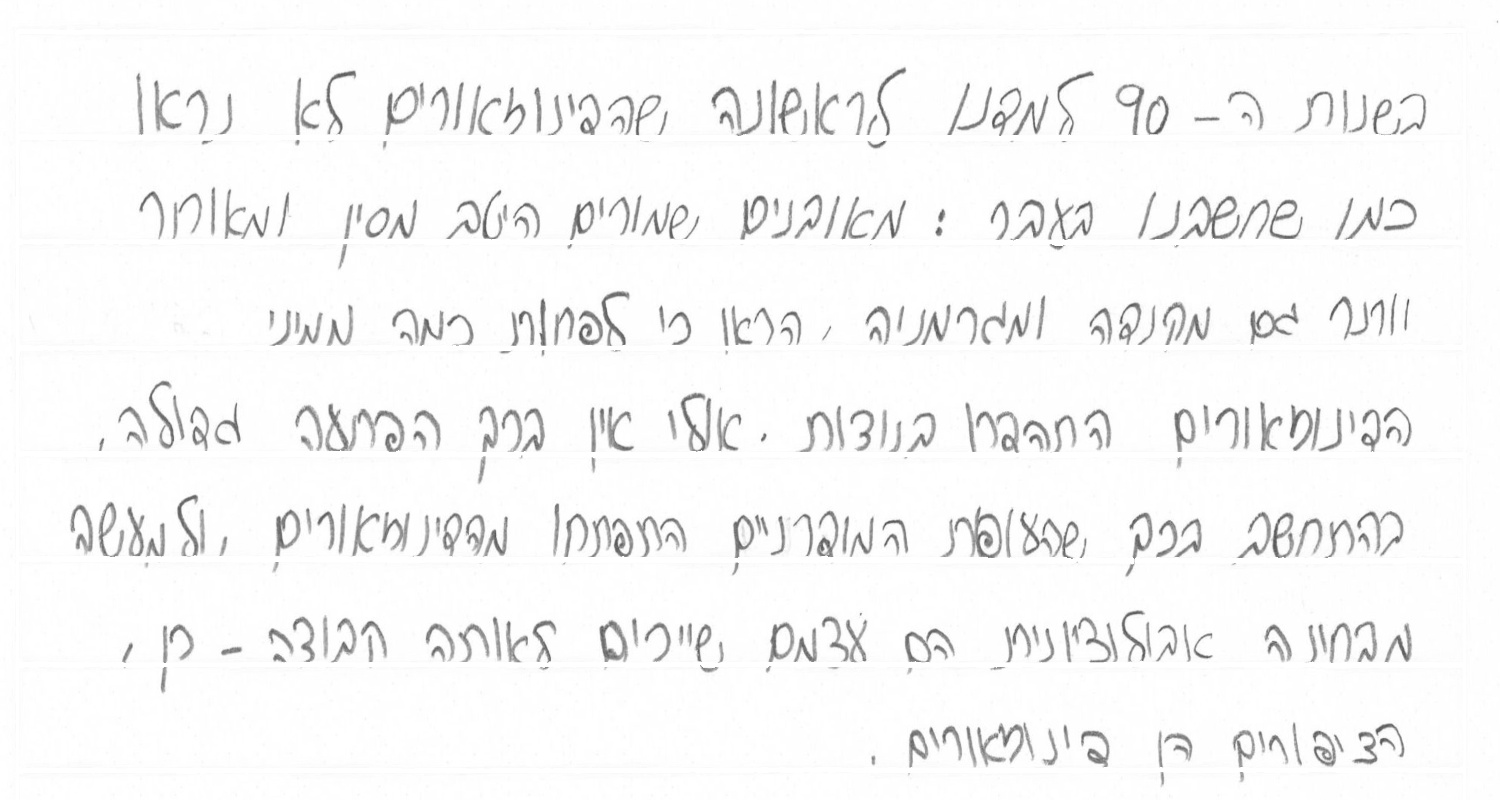 בשנות ה- 90 למדנו לראשונה שהדינוזאורים לא נראו
כמו שחשבנו בעבר : מאובנים שמורים היטב מסין ומאוחר
יותר גם מקנדה ומגרמניה , הראו כי לפחות כמה ממיני
הדינוזאורים התהדרו בנוצות . אולי אין בכך הפתעה גדולה ,
בהתחשב בכך שהעופות המודרניים התפתחו מהדינוזאורים , ולמעשה
מבחינה אבולוציונית הם עצמם שייכים לאותה קבוצה - כן ,
הציפורים הן דינוזאורים .